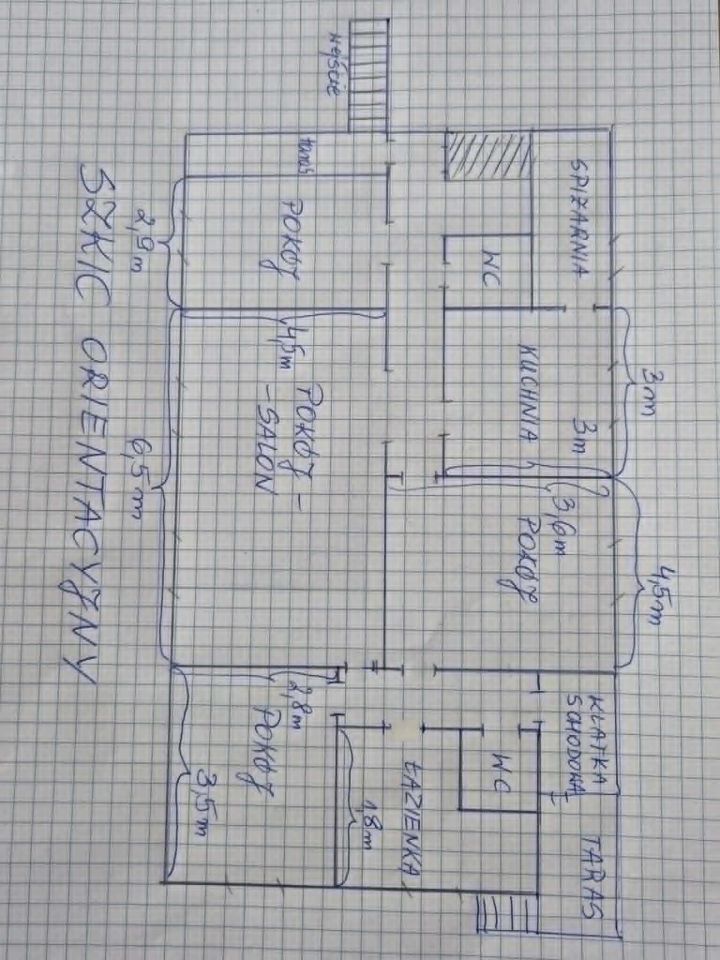 WEJŚCIE
taras
SPIŻARNIA
WC
POKÓJ
2,9 m
3m
KUCHNIA
3m
4,5m
POKÓJ -
- SALON
6,5 m
3,6m
POKÓJ
4,5m
KLATKA
SCHODOWA
TARAS
WC
ŁAZIENKA
1,8m
2,8m
POKÓJ
3,5m
SZKIC ORIENTACYJNY